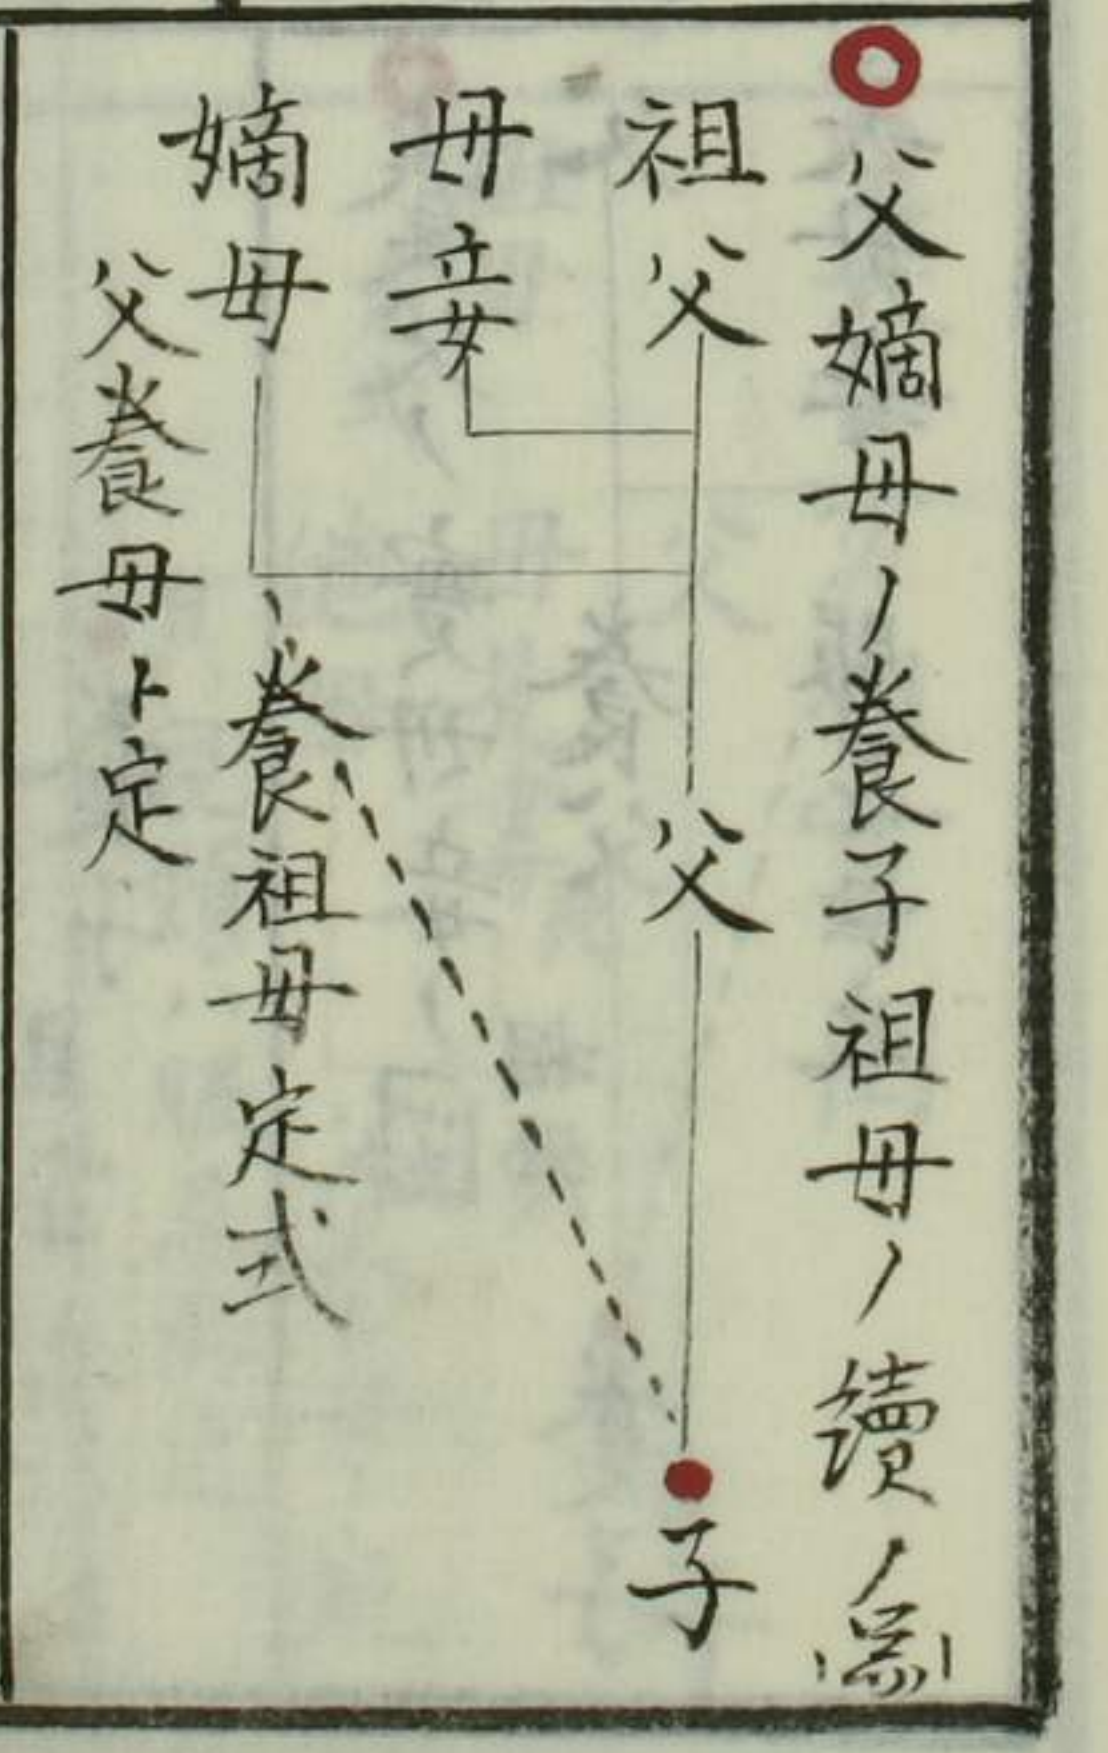 父嫡母ノ養子祖母ノ續ノ
祖父
父
子
母妾
嫡母
養祖母定式
父養母ト定